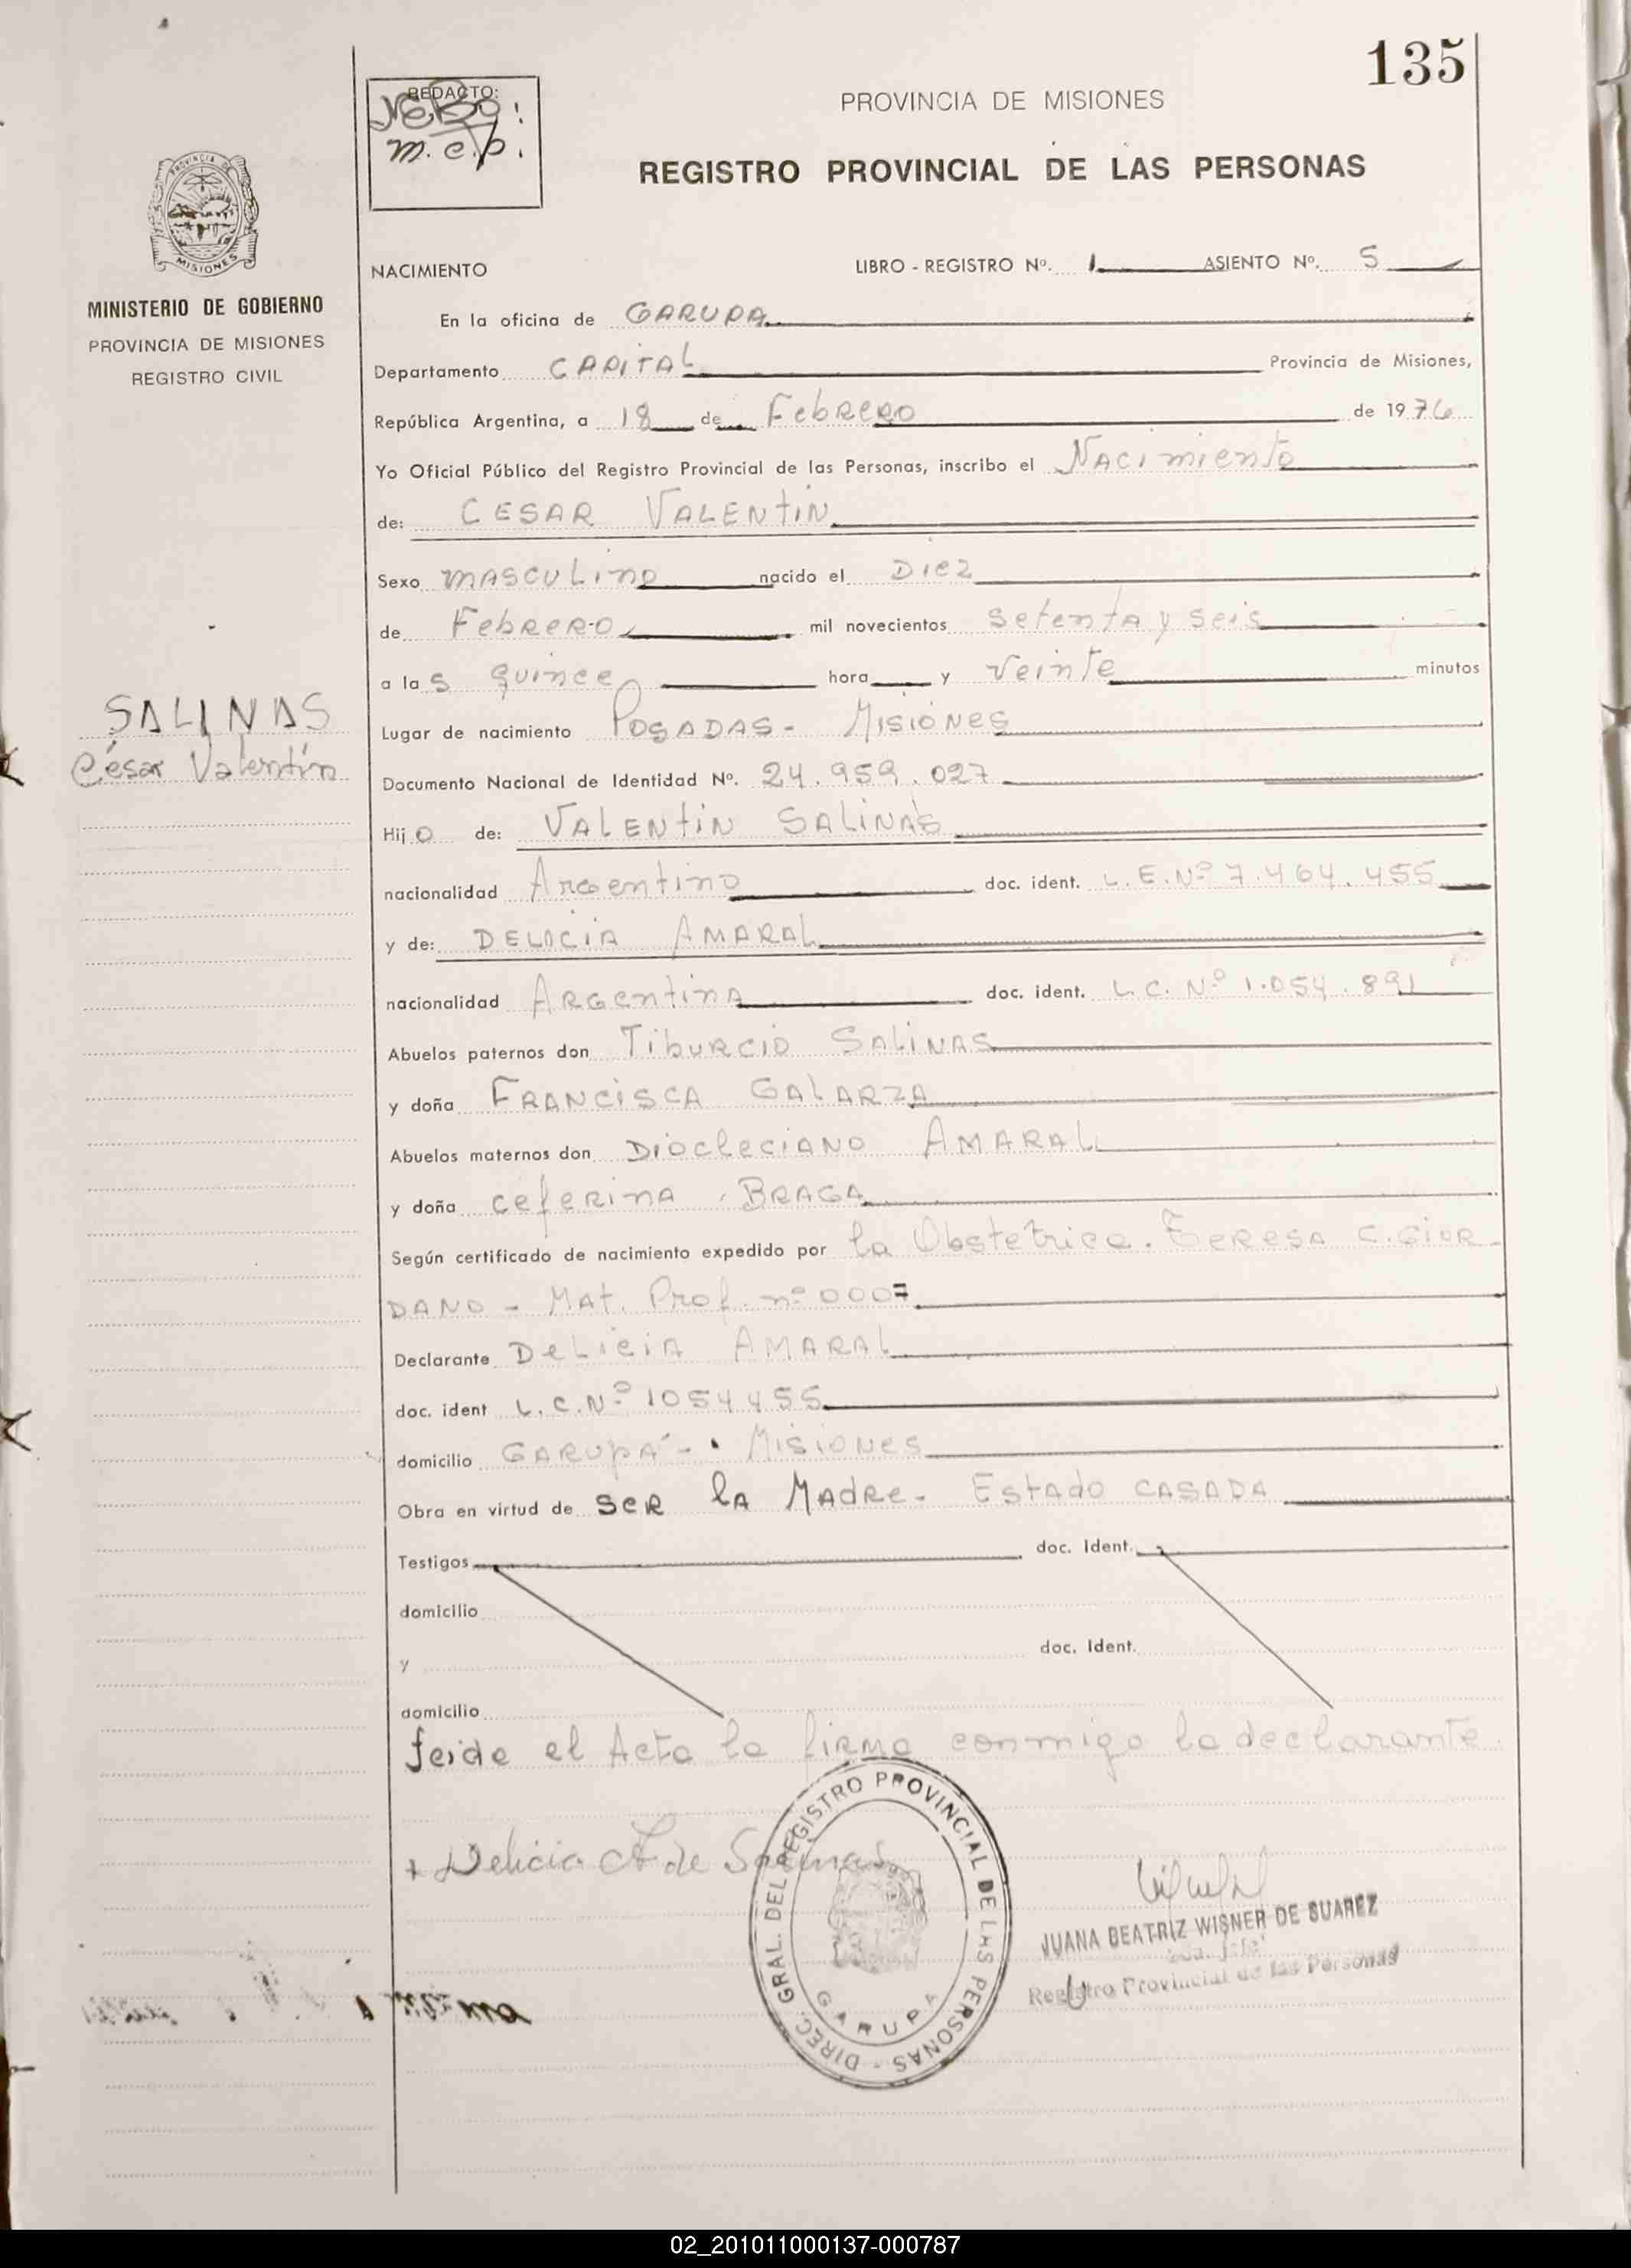 135
REDACTO:
m.c.p.
PROVINCIA DE MISIONES
REGISTRO PROVINCIAL DE LAS PERSONAS
PROVINCIA DE
MISIONES
MINISTERIO DE GOBIERNO
PROVINCIA DE MISIONES
REGISTRO CIVIL
SALINAS
César Valentín
NACIMIENTO LIBRO - REGISTRO Nº. 1 ASIENTO Nº. 5
En la oficina de GARUPA
Departamento CAPITAL Provincia de Misiones,
República Argentina, a 18 de Febrero de 1976
Yo Oficial Público del Registro Provincial de las Personas, inscribo el Nacimiento
de: CESAR VALENTIN
Sexo MASCULINO nacido el Diez
de Febrero mil novecientos setenta y seis
a las quince hora y veinte minutos
Lugar de nacimiento POSADAS - MISIONES
Documento Nacional de Identidad Nº. 24.959.027
Hijo de: VALENTIN SALINAS
nacionalidad Argentino doc. ident. L.E.Nº 7.464.455
y de: DELICIA AMARAL
nacionalidad ARGentinA doc. ident. L.C. Nº 1.054.891
Abuelos paternos don TIBURCIO SALINAS
y doña FRANCISCA GALARZA
Abuelos maternos don DIOCLECIANO AMARAL
y doña CEFERINA BRAGA
Según certificado de nacimiento expedido por la Obstetrica. TERESA C. GIOR-
DANO - MAT. Prof. nº 0007
Declarante DELICIA AMARAL
doc. ident L.C.Nº 1054455
domicilio GARUPÁ - MISIONES
Obra en virtud de SER LA MADRE - ESTADO CASADA
Testigos doc. Ident.
domicilio
y doc. Ident.
domicilio
Leida el Acta la firma conmigo la declarante
+ Delicia A de Salinas
DIREC. GRAL. DEL REGISTRO PROVINCIAL DE LAS PERSONAS -
GARUPA
JUANA BEATRIZ WISNER DE SUAREZ
Registro Provincial de las Personas
02_201011000137-000787